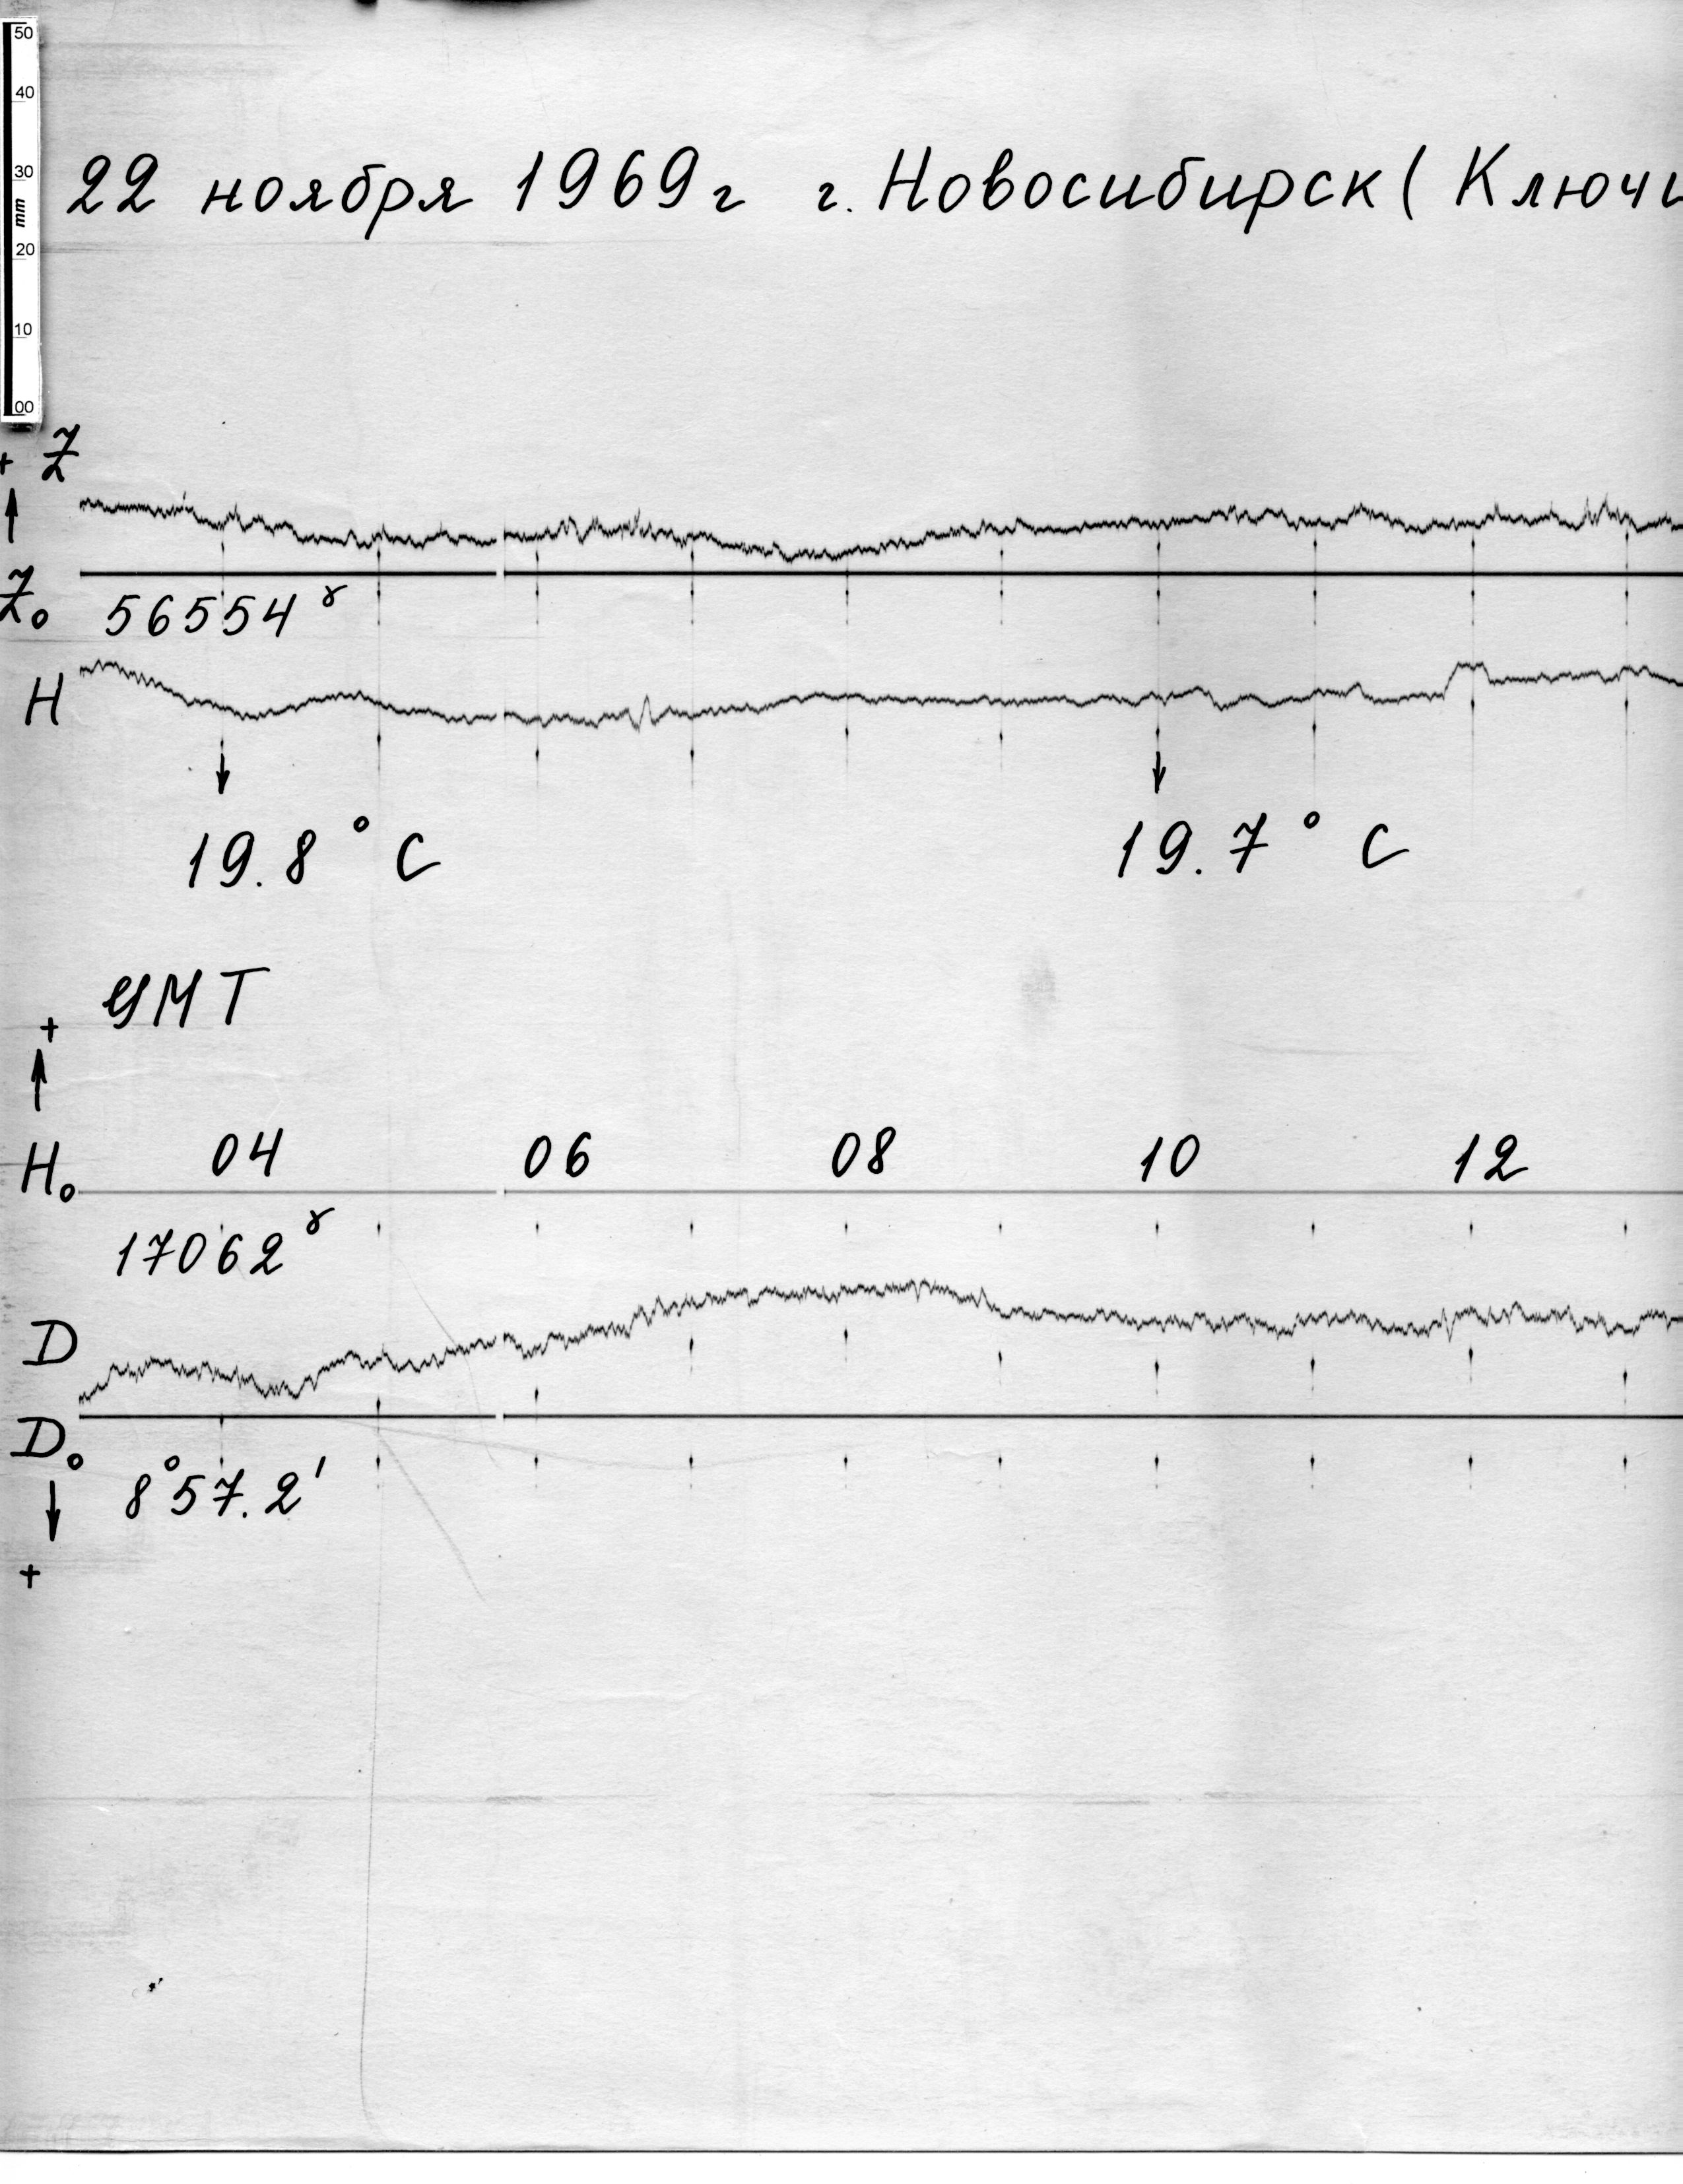 50
40
30
mm
20
10
00
22 ноября 1969г г. Новосибирск (Ключи
+ Z
Z₀ 56554 γ
H
19.8° C 19.7° C
УМТ
+
04 06 08 10 12
H₀
17062 γ
D
D₀
8°57.2'
+